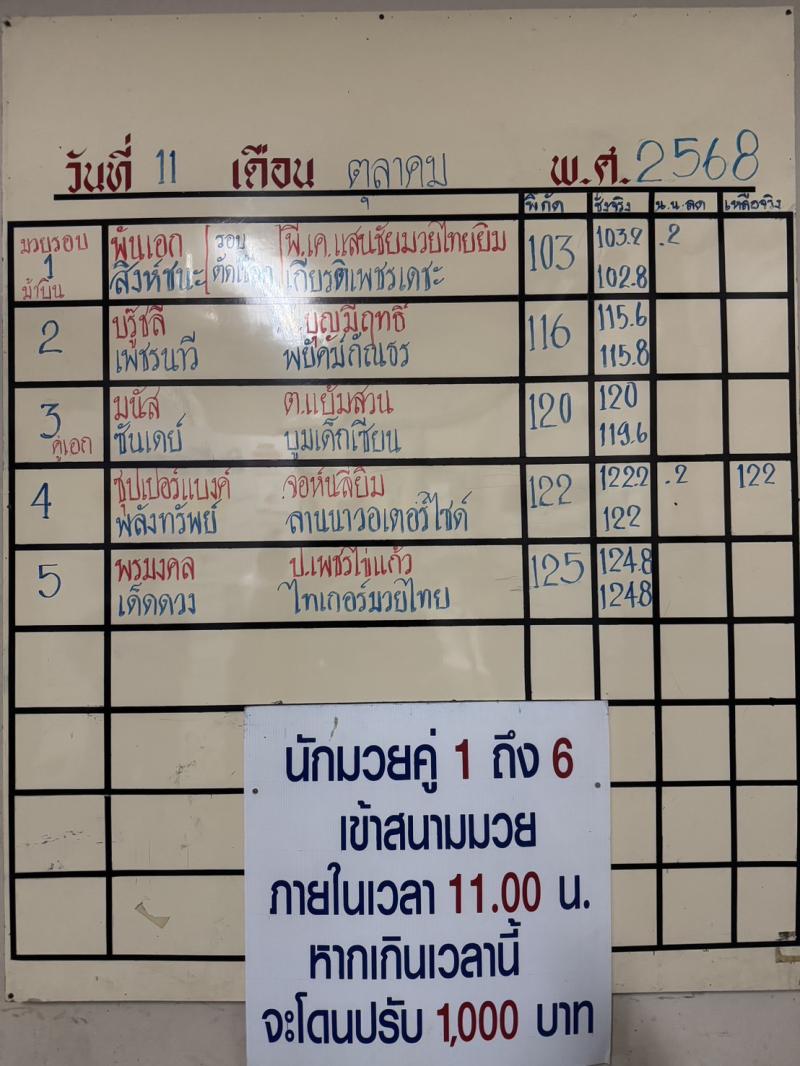 วันที่ 11 เดือน ตุลาคม พ.ศ. 2568
พิกัด ชั่งจริง น.น.ลด เหลือจริง
มวยรอบ พันเอก รอบ พี.เค.แสนชัยมวยไทยยิม 103 103.2 .2
1 สิงห์ชนะ เกียรติเพชรเดชะ 102.8
ม้าบิน
2 บรู๊ซลี บุญมีฤทธิ์ 116 115.6
เพชรนาวี พยัคฆ์กัณธร 115.8
3 มนัส ต.แย้มสวน 120 120
คู่เอก ซันเดย์ บูมเด็กเซียน 119.6
4 ซุปเปอร์แบงค์ จอห์นลียิม 122 122.2 .2 122
พลังทรัพย์ ลานนาวอเตอร์ไซด์ 122
5 พรมงคล ป.เพชรไข่แก้ว 125 124.8
เด็ดดวง ไทเกอร์มวยไทย 124.8
นักมวยคู่ 1 ถึง 6
เข้าสนามมวย
ภายในเวลา 11.00 น.
หากเกินเวลานี้
จะโดนปรับ 1,000 บาท